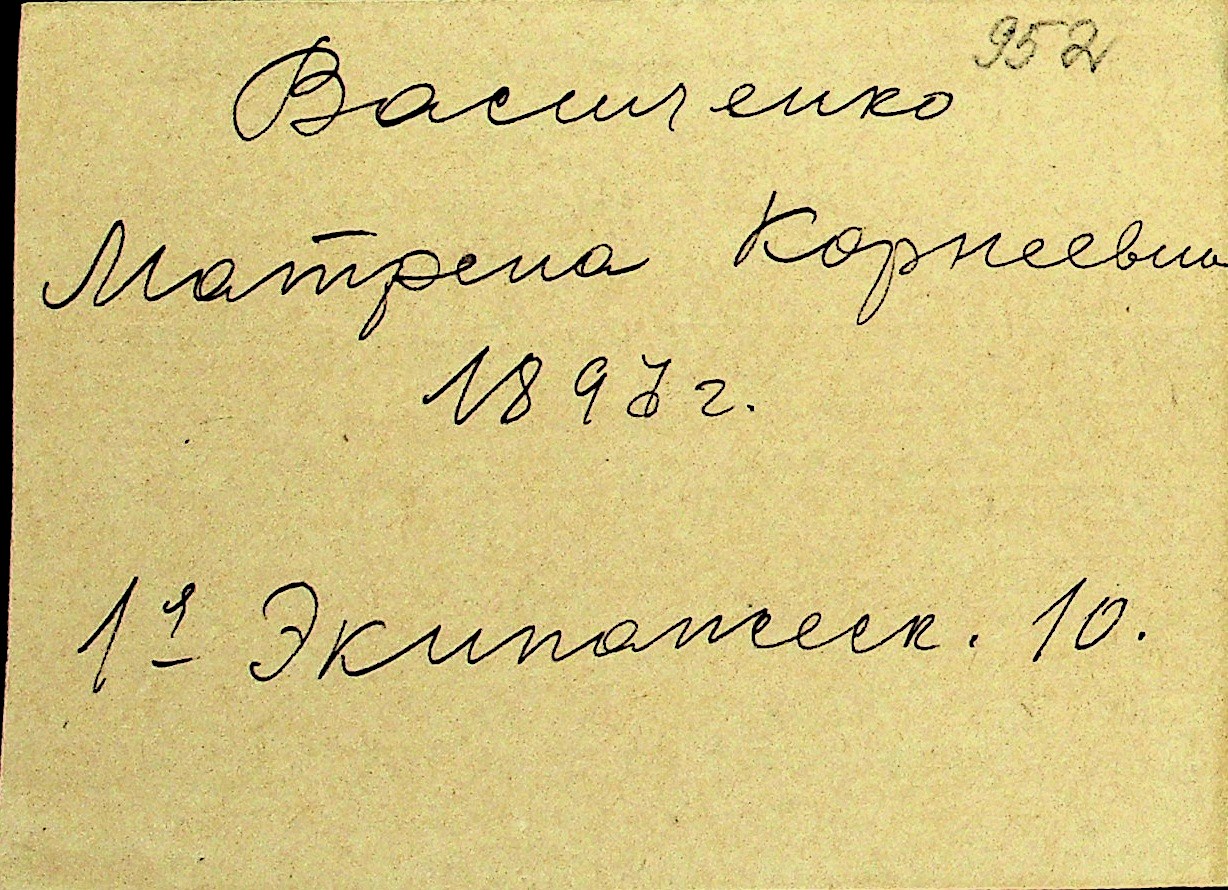 952
Васиченко
Матрена Корнеевна
1897 г.
1я Экипажеск. 10.